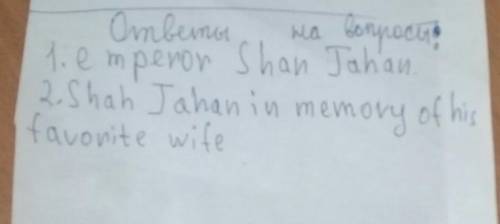 Ответы на вопросы:
1. e mperor Shan Jahan.
2. Shah Jahan in memory of his
favorite wife